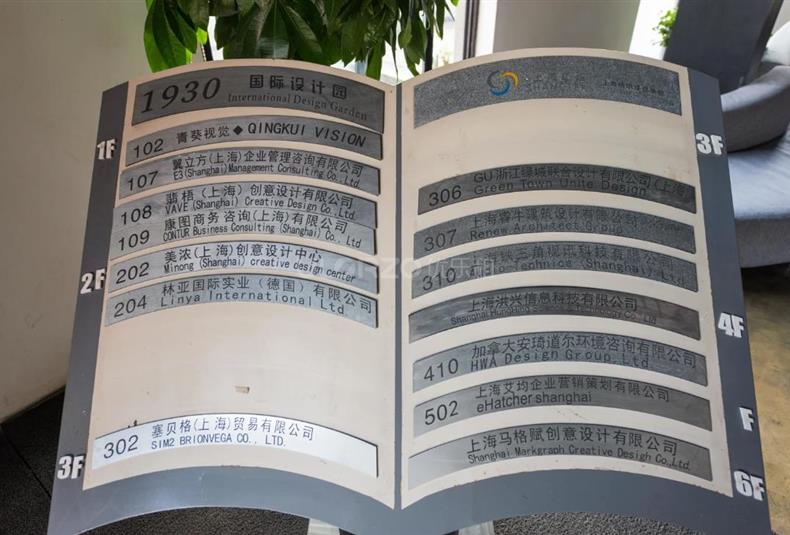 1930 国际设计园
International Design Garden
1F
102 青葵视觉◆QINGKUI VISION
107 翼立方(上海)企业管理咨询有限公司
E3(Shanghai)Management Consulting Co.,Ltd.
108 翡梧(上海)创意设计有限公司
VAVE (Shanghai) Creative Design Co.,Ltd.
109 康图商务咨询(上海)有限公司
CONTUR Business Consulting (Shanghai) Co.,Ltd.
2F
202 美浓(上海)创意设计中心
Minong (Shanghai) creative design center
204 林亚国际实业(德国)有限公司
Linya International Ltd
302 塞贝格(上海)贸易有限公司
SIM2 BRIONVEGA CO., LTD.
3F
3F
306 GU 浙江绿城联合设计有限公司(上海)
Green Town Unite Design
307
Renew Architect Group
310
(Shanghai) Co.,Ltd
上海洪兴信息科技有限公司
4F
410 加拿大安琦道尔环境咨询有限公司
HWA Design Group Ltd
502 上海艾均企业营销策划有限公司
eHatcher shanghai
F
上海马格赋创意设计有限公司
Shanghai Markgraph Creative Design Co.,Ltd
6F